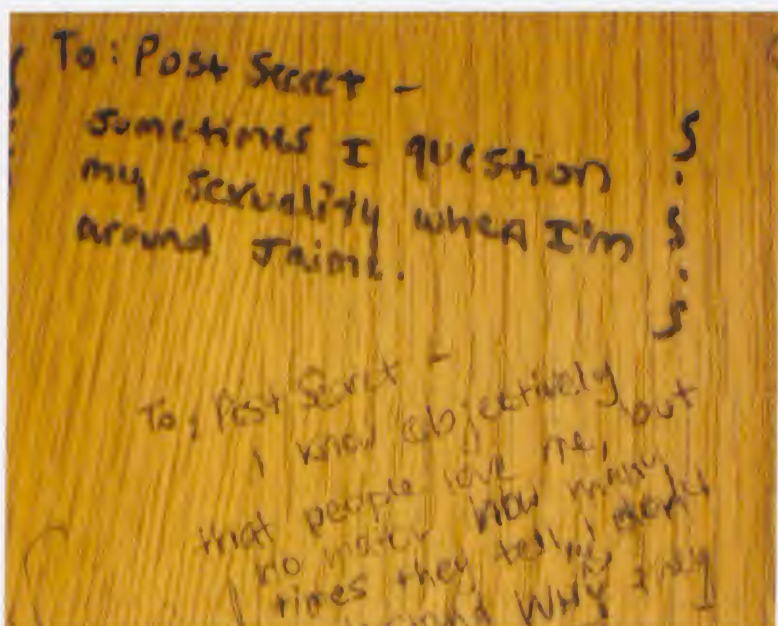 To: Post Secret -
Sometimes I question
my sexuality when I'm
around Jaime.
To: Post Secret -
I know objectively
that people love me, but
no mater how many
times they tell me, I don't
WHY they